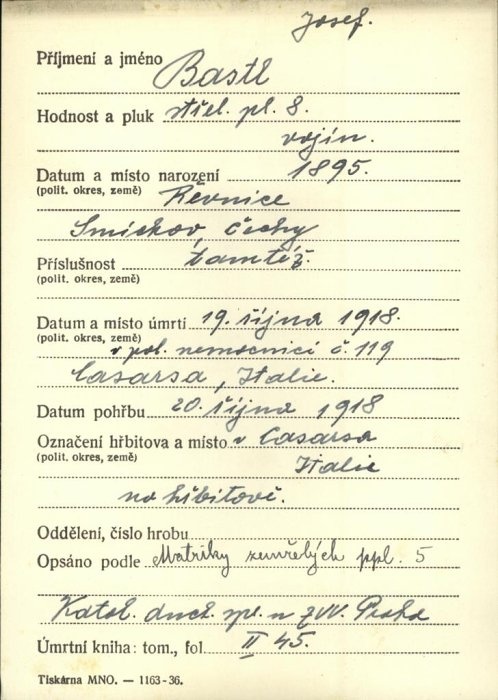 Josef.
Příjmení a jméno Bastl
Hodnost a pluk střel. pl. 8.
vojín.
Datum a místo narození 1895.
(polit. okres, země) Řevnice
Smíchov, Čechy
Příslušnost tamtéž.
(polit. okres, země)
Datum a místo úmrtí 19. října 1918.
(polit. okres, země) v pol. nemocnici č. 119
Casarsa, Italie.
Datum pohřbu 20. října 1918
Označení hřbitova a místo v Casarsa
(polit. okres, země) Italie
na hřbitově.
Oddělení, číslo hrobu
Opsáno podle Matriky zemřelých ppl. 5
Katol. duch. spr. u ZVV. Praha
Úmrtní kniha: tom., fol. II 45.
Tiskárna MNO. — 1163-36.